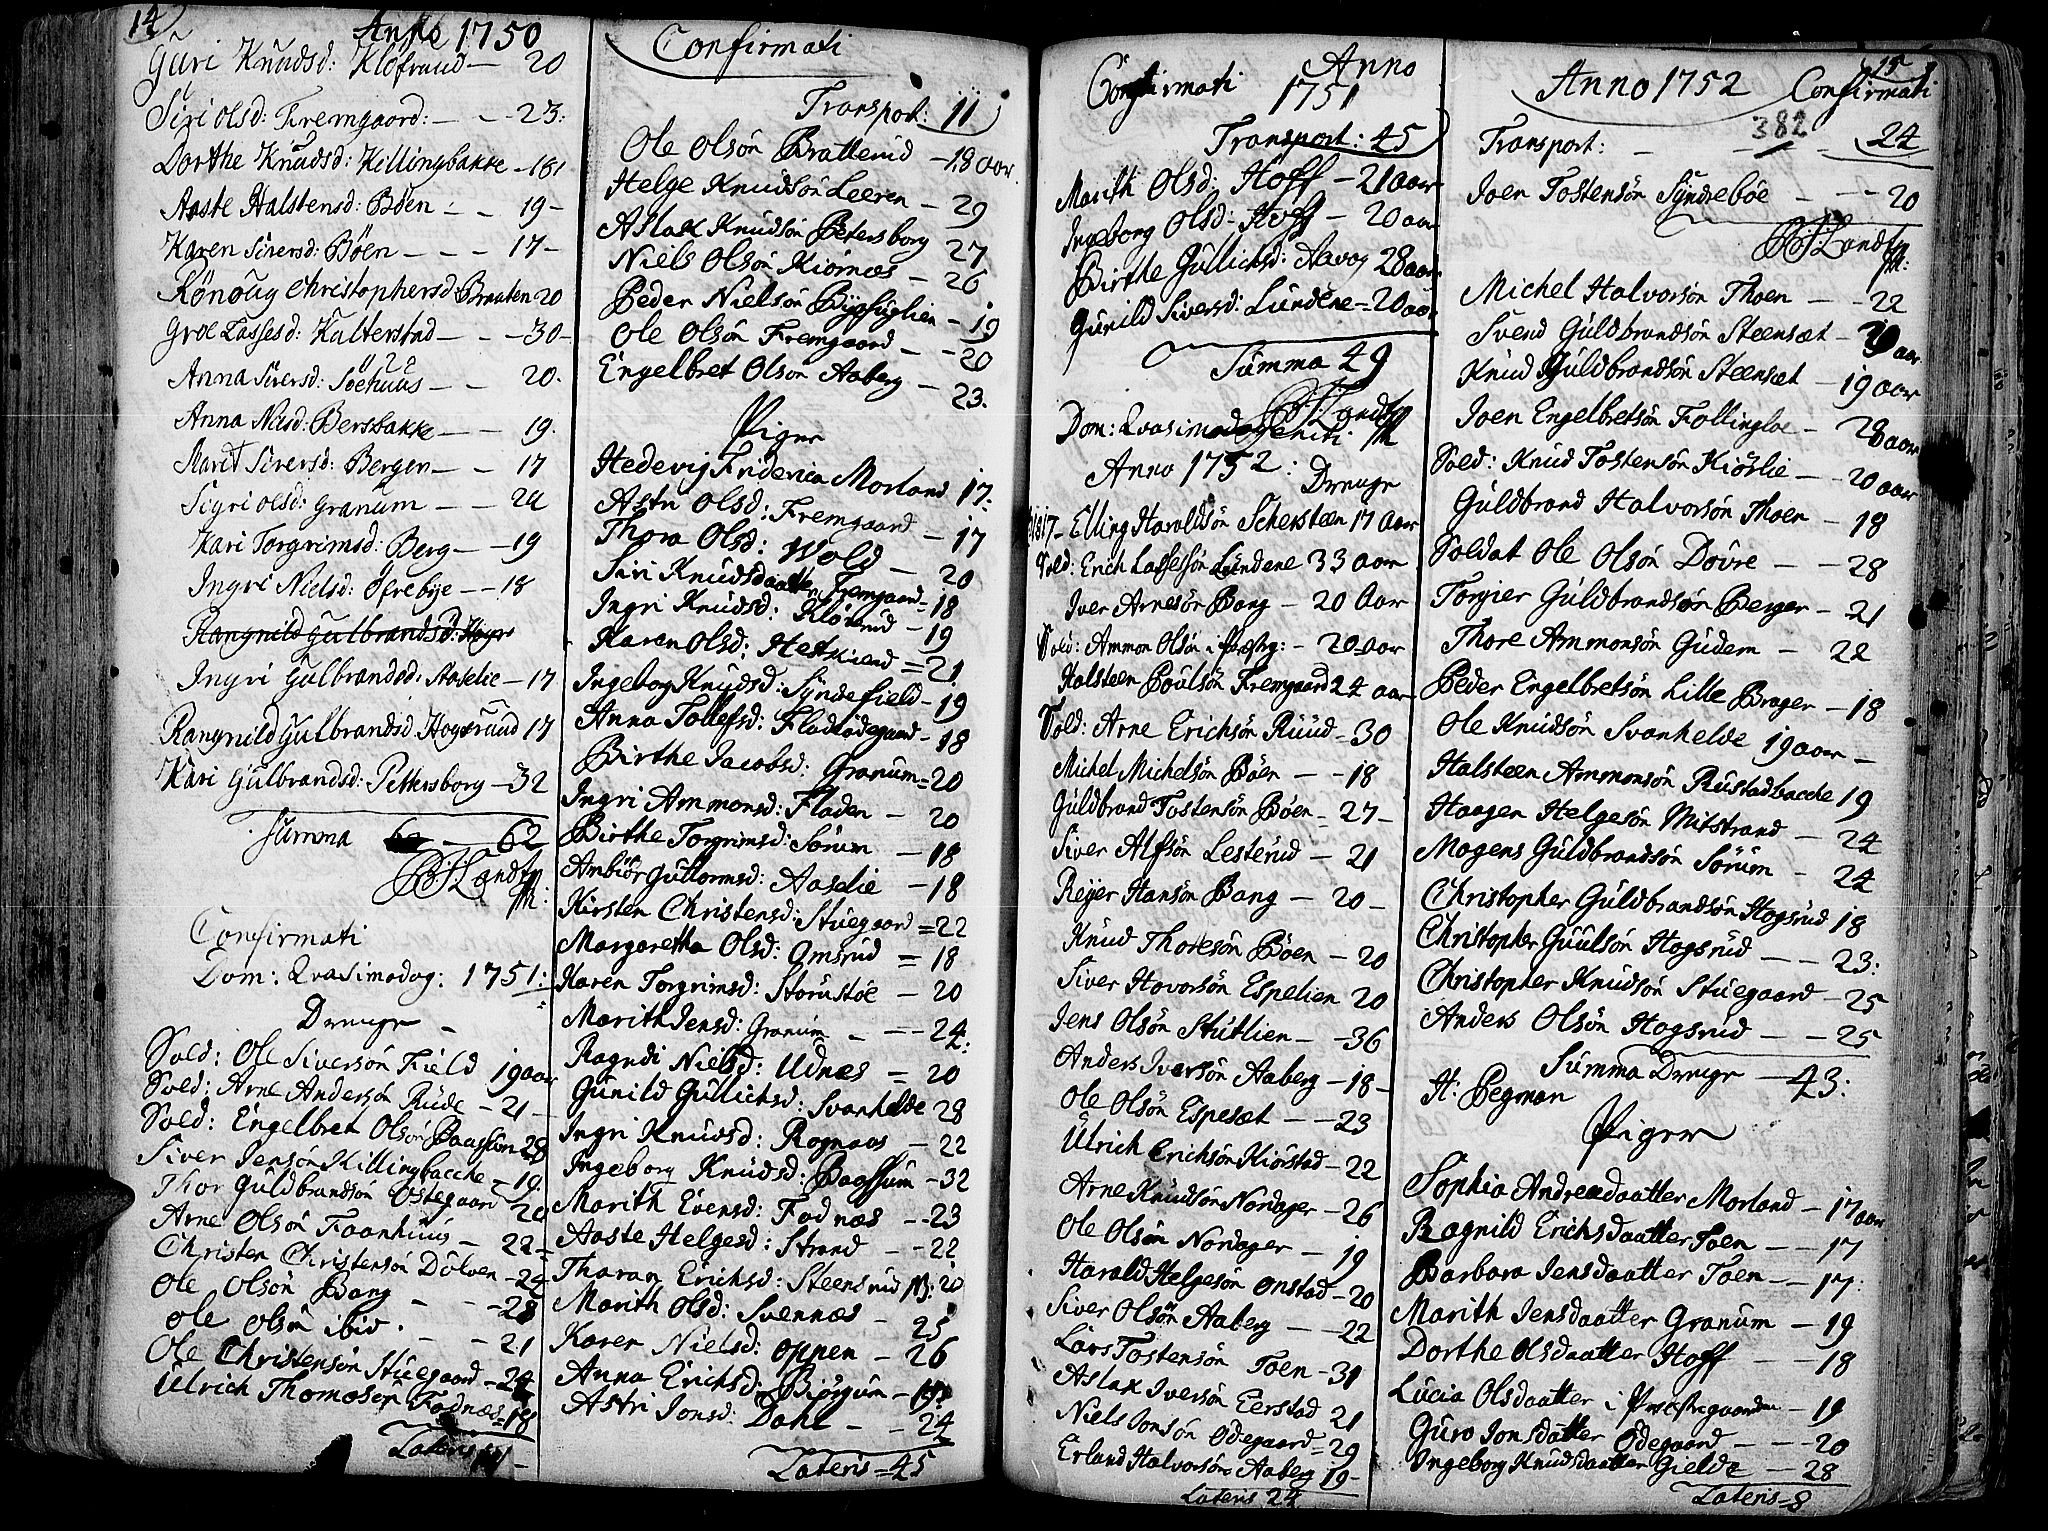 14
Anno 1750
Guri Knudsd: Klofrud — 20
Siri Olsd: Fremgaard: — — 23:
Dorthe Knudsd: Killingbakke — 18
Aaste Halstensd: Böen — — 19 —
Karen Siversd: Böen — — — 17 —
Rönoug Christophersd: Braaten 20
Groe Lassesd: Kalterstad — — 30 —
Anna Siversd: Söehuus — — 20.
Anna Nilsd: Bersbakke — — 19.
Marit Siversd: Bergen — — 17
Sigri Olsd: Granum — — 24
Kari Torgrimsd: Berg — — 19
Ingri Nielsd: Öfrebÿe — — 18
Rangnild Gulbrandsd: Hogs
Ingri Gulbrandsd: Aaselie — 17
Rangnild Gulbrandsd Hogsruud 17
Kari Gulbrandsd: Pettersborg — 32
Summa 62 — 62
Confirmati
Dom: Qvasimodog: 1751:
Drenge —
Sold: Ole Siversön Field 19 aar
Sold: Arne Andersön Rude — 21 —
Sold: Engelbret Olsön Baassum 28
Siver Jensön Killingbacche = 19.
Thor Guldbrandsön Östegaard 20
Arne Olsön Faanhuus — 22 —
Christen Christensön Dölven — 24
Ole Olsön Bang — — 28
Ole Olsön ibid. — — 21
Ole Christensön Stuegaard — 24
Ulrich Thomesön Fodnæs = 18
Lateris 11 —
Confirmati
Transport: 11
Ole Olsön Bratterud — 18 aar.
Helge Knudsön Leeren — 29
Aslak Knudsön Petersborg 27
Niels Olsön Kiörnæs — 26
Peder Nielsön Bÿfuglien — 19
Ole Olsön Fremgaard — — 20
Engelbret Olsön Aaberg — 23.
Piger
Hedevig Friderica Morland 17.
Astri Olsd: Fremgaard — 17
Thora Olsd: Wold — 20
Siri Knudsdaatter Fremgaard = 18
Ingri Knudsd: Klöverud — 19
Karen Olsd: Hetkierd = 21
Ingeborg Knudsd: Syndefield — 19
Anna Tollefsd: Fladödegaard — 18
Birthe Jacobsd: Granum = 20
Ingri Ammonsd: Fladen — 20
Birthe Torgrimsd: Sörum — 18
Ambiör Guttormsd: Aaselie — 18
Kirsten Christensd: Stuegaard = 22
Margaretha Olsd: Gmsrud = 18
Karen Torgrimsd: Storustöe — 20
Marith Jensd: Granum — — 24:
Ragndi Nielsd: Udnæs = 20
Gunild Gullichsd: Svanhelde 28
Ingri Knudsd: Rognaas — 22
Ingeborg Knudsd: Baassum — 32
Marith Evensd: Fodnæs — 23
Aaste Helgesd: Strand — — 22
Tharan Erichsd: Steensrud 20
Marith Olsd: Svennæs — 25
Karen Nielsd: Oppen — 26
Anna Erichsd: Biörgum — 19
Astri Jonsd: Dahl — 24
Lateris = 45
Confirmati Anno
1751
Transport: 45
Marith Olsd: Hoff — 21 aar
Ingeborg Olsd: Hoff — 20 aar
Birthe Gullichsd: Aavog 28 aar
Gunild Siversd: Lundene = 20 aar
Summa 49
Dom: Qvasimodogeniti.
Anno 1752: Drenge
Elling Haraldsön Schersteen 17 Aar
Sold: Erich Lassesön Lundene 33 aar
Iver Arnesön Bang — 20 Aar
Sold: Ammon Olsön i Præstg: — 20 aar
Halsteen Poulsön Fremgaard 24 aar
Sold: Arne Erichsön Ruud — 30
Michel Michelsön Böen — — 18
Guldbrand Tostensön Böen — 27 —
Siver Alfsön Lesterud — 21
Reÿer Hansön Bang — 20 —
Knud Thoresön Böen — 20
Siver Hovorsön Espelien 20
Jens Olsön Stutlien — — 36
Anders Iversön Aaberg — 18 —
Ole Olsön Espesæt — — 23
Ulrich Erichsön Kiörstad — 22
Arne Knudsön Nordager — 26
Ole Olsön Nordager — 19
Harald Helgesön Onstad — 20
Siver Olsön Aaberg — — 22
Lars Tostensön Toen — 31
Aslak Iversön Eerstad 21
Niels Jonsön Ödegaard = 29
Erland Halvorsön Aaberg 19 —
Lateris 24
15
Anno 1752 Confirmati
382
Transport: — 24
Joen Tostensön Syndreböe — — 20
Michel Halvorsön Thoen — — 22
Svend Guldbrandsön Steensæt — aar
Knud Guldbrandsön Steensæt — 19 aar
Joen Engelbretsön Follingloe — 28 aar
Sold: Knud Tostensön Kiöslie — — 20 aar
Guldbrand Halvorsön Thoen — 18
Soldat Ole Olsön Dovre — — 28
Torgier Guldbrandsön Berger — 21
Thore Ammonsön Gudem — 22
Peder Engelbretsön Lille Brager — 18
Ole Knudsön Svanhelde 19 aar —
Halsteen Ammonsön Rustadbacche 19
Haagen Helgesön Mitstrand — 24
Mogens Guldbrandsön Sörum — 24
Christopher Guldbrandsön Hogsrud 18
Christopher Guulsön Hogsrud — — 23:
Christopher Knudsön Stuegaard — 25
Anders Olsön Hogsrud — — 25
Summa Drenge — 43:
H: Pegman
Piger
Sophia Andreadaatter Morland — 17 aar
Ragnild Erichsdaatter Toen — — 17
Barbara Jensdaatter Toen — — 17:
Marith Jensdaatter Granum — 19
Dorthe Olsdaatter Hoff — — 18
Lucia Olsdaatter i Præstegaarden — 19
Guro Jonsdatter Ödegaard — — 20
Ingeborg Knudsdaatter Gielde — 28
Lateris — 8